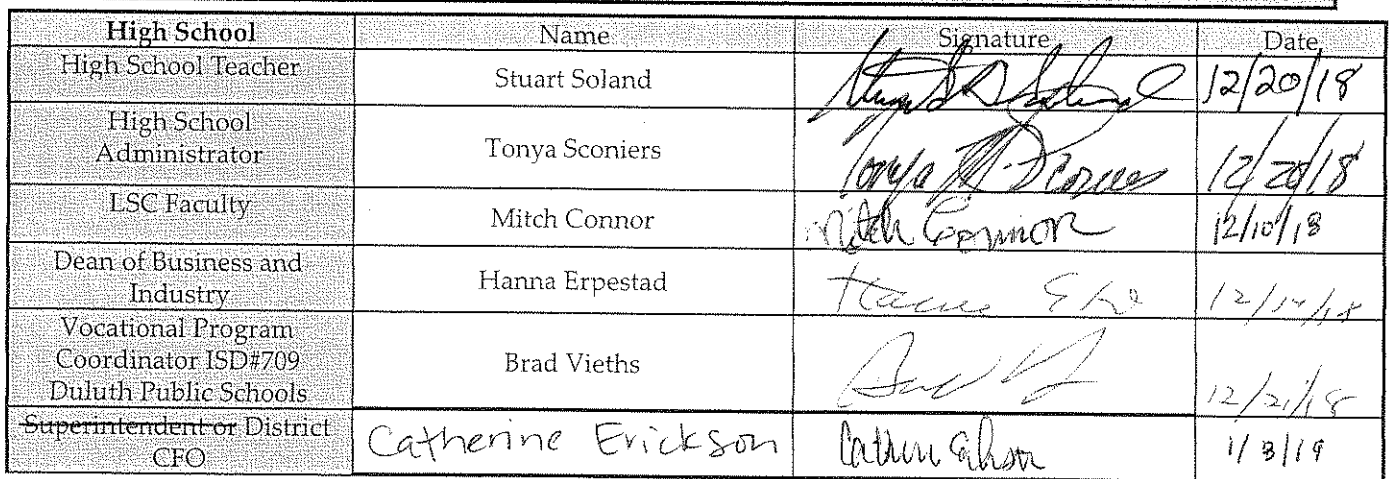 High School Name Signature Date
High School Teacher Stuart Soland 12/20/18
High School
Administrator Tonya Sconiers Tonya M. Sconiers 12/20/18
LSC Faculty Mitch Connor Mitch Connor 12/10/18
Dean of Business and
Industry Hanna Erpestad
Vocational Program
Coordinator ISD#709
Duluth Public Schools Brad Vieths 12/21/18
Superintendent or District
CFO Catherine Erickson 1/3/19